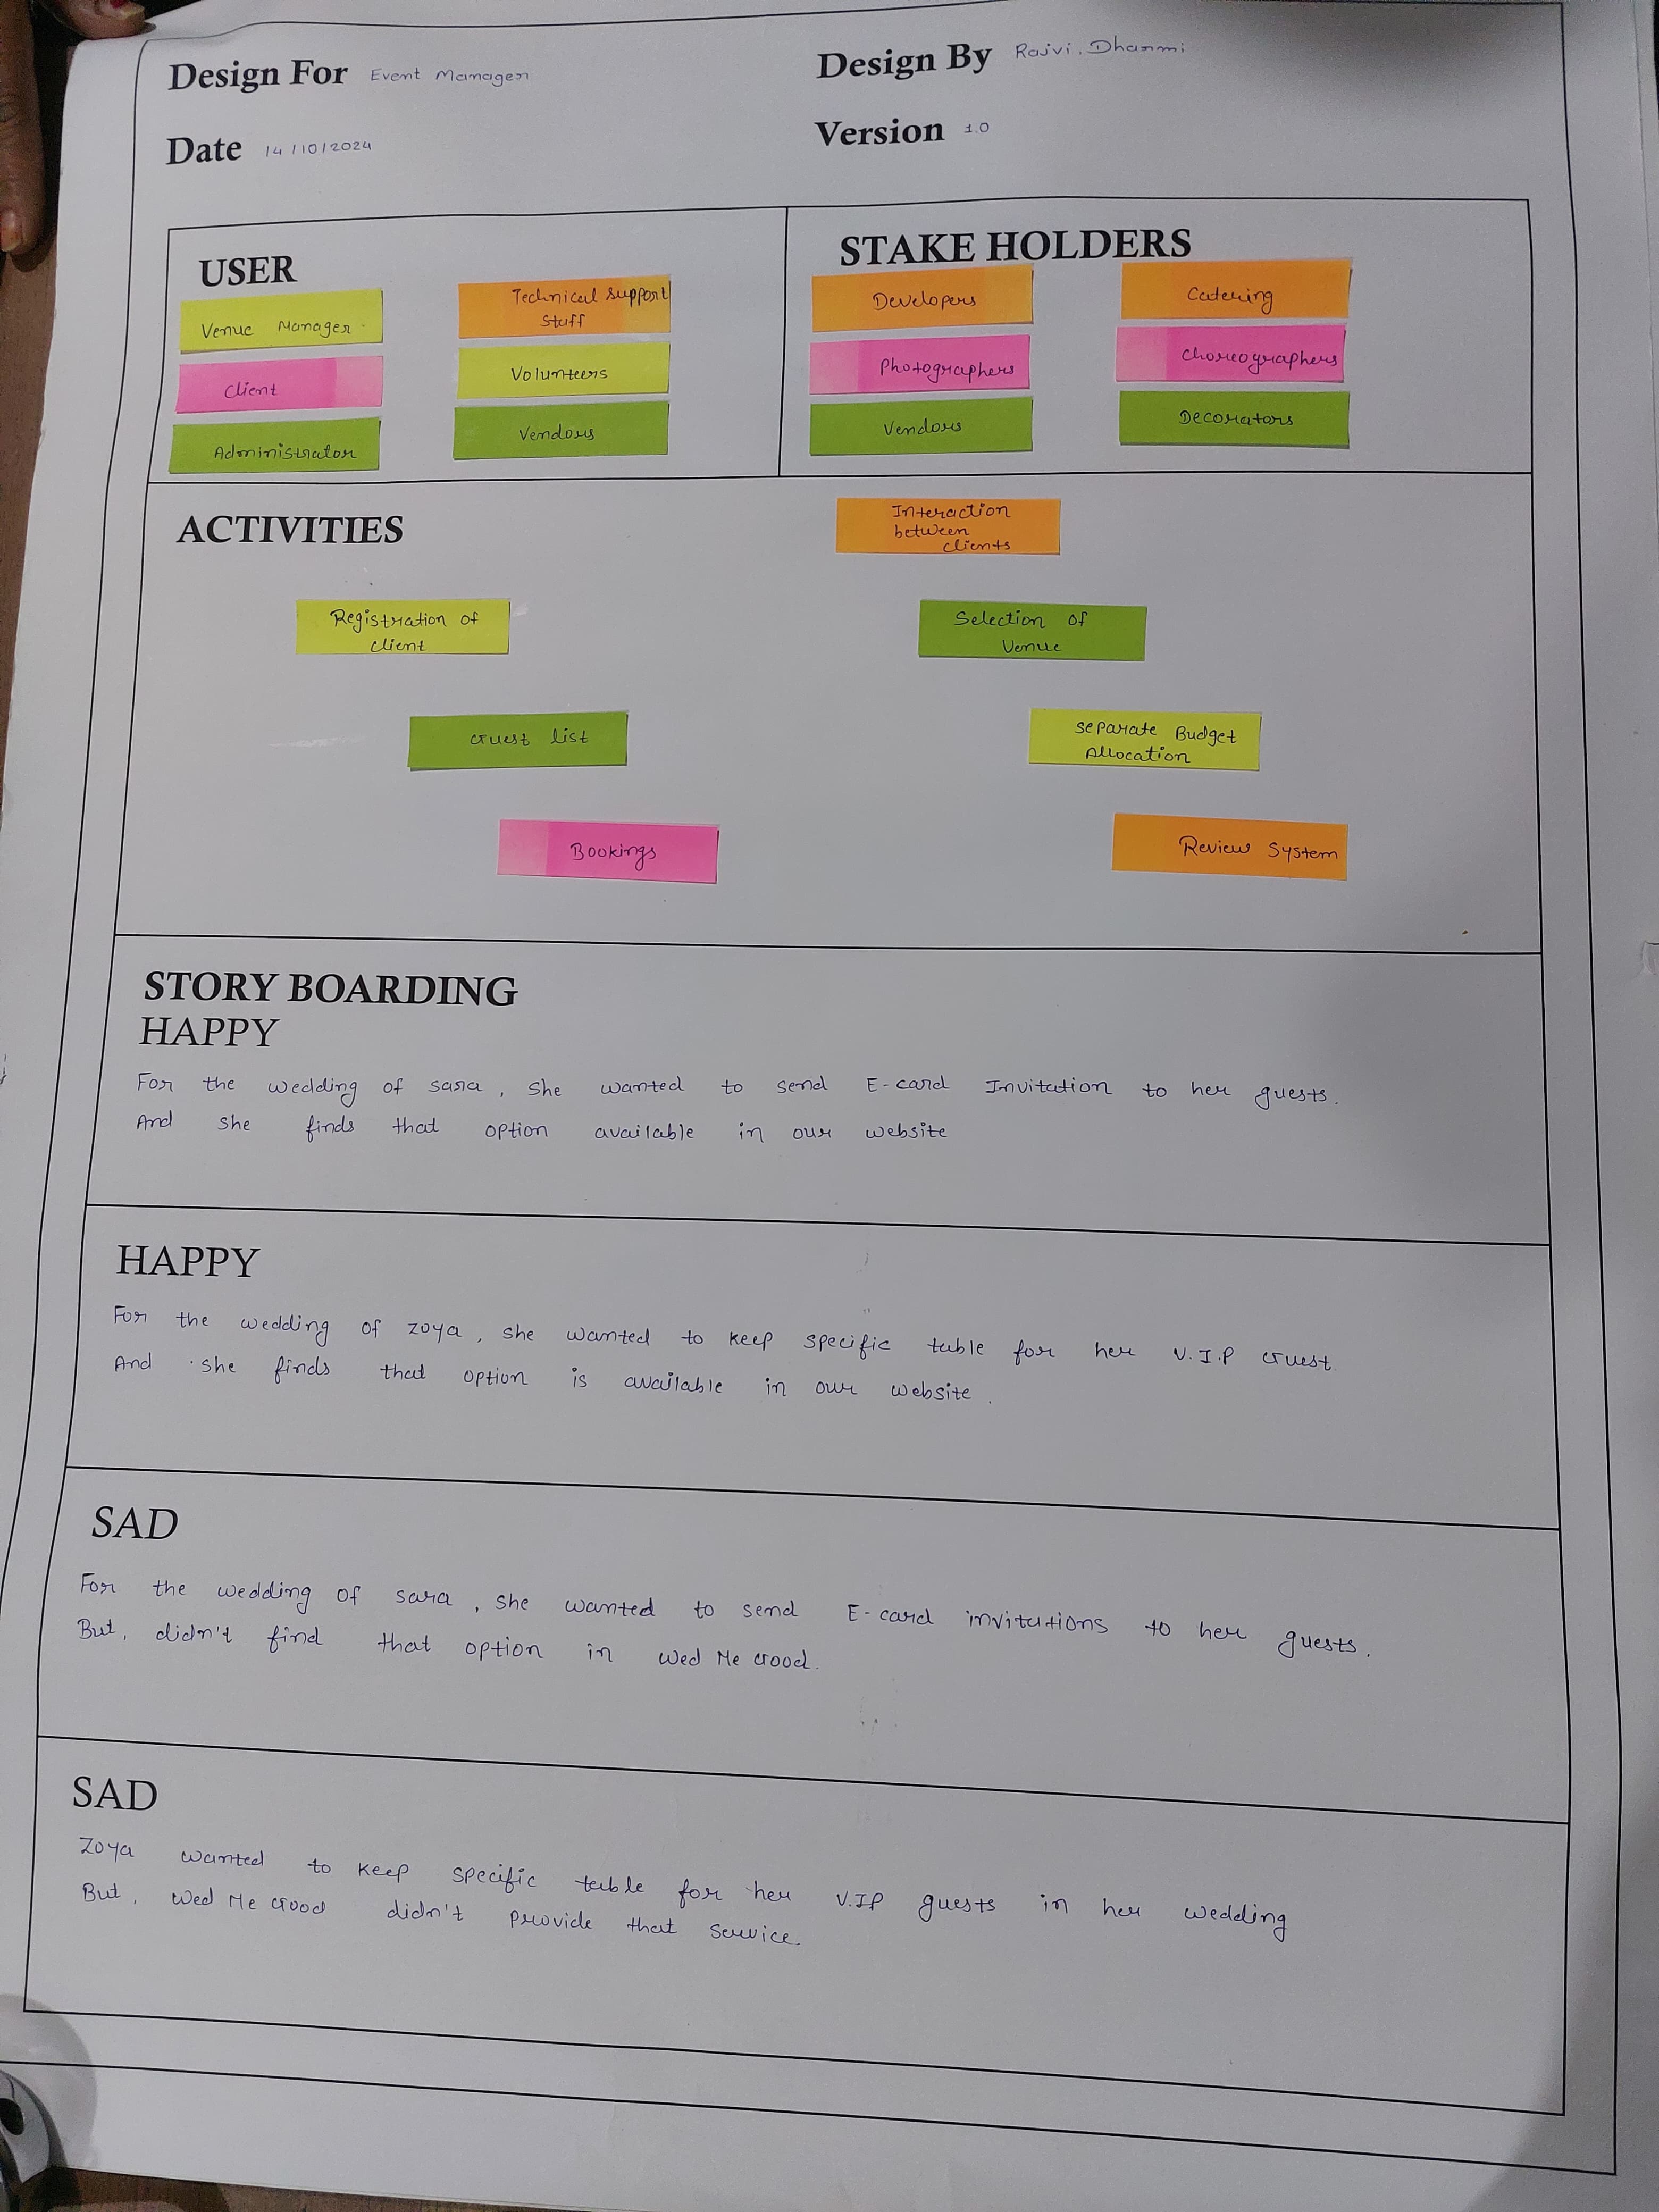 Design For Event Manager
Design By Rajvi, Dhanmi
Date 14/10/2024
Version 1.0
USER
Venue Manager
Client
Administrator
Technical Support
Staff
Volunteers
Vendors
STAKE HOLDERS
Developers
Photographers
Vendors
Catering
Choreographers
Decorators
ACTIVITIES
Registration of
Client
Guest list
Bookings
Interaction
between
clients
Selection of
Venue
Separate Budget
Allocation
Review System
STORY BOARDING
HAPPY
For the wedding of sara, she wanted to send E-card Invitation to her guests.
And she finds that option available in our website
HAPPY
For the wedding of zoya, she wanted to keep specific table for her V.I.P Guest
And she finds that option is available in our website.
SAD
For the wedding of sara, she wanted to send E-card invitations to her guests.
But, didn't find that option in Wed Me Good.
SAD
Zoya wanted to keep specific table for her V.IP guests in her wedding
But, Wed Me Good didn't provide that service.